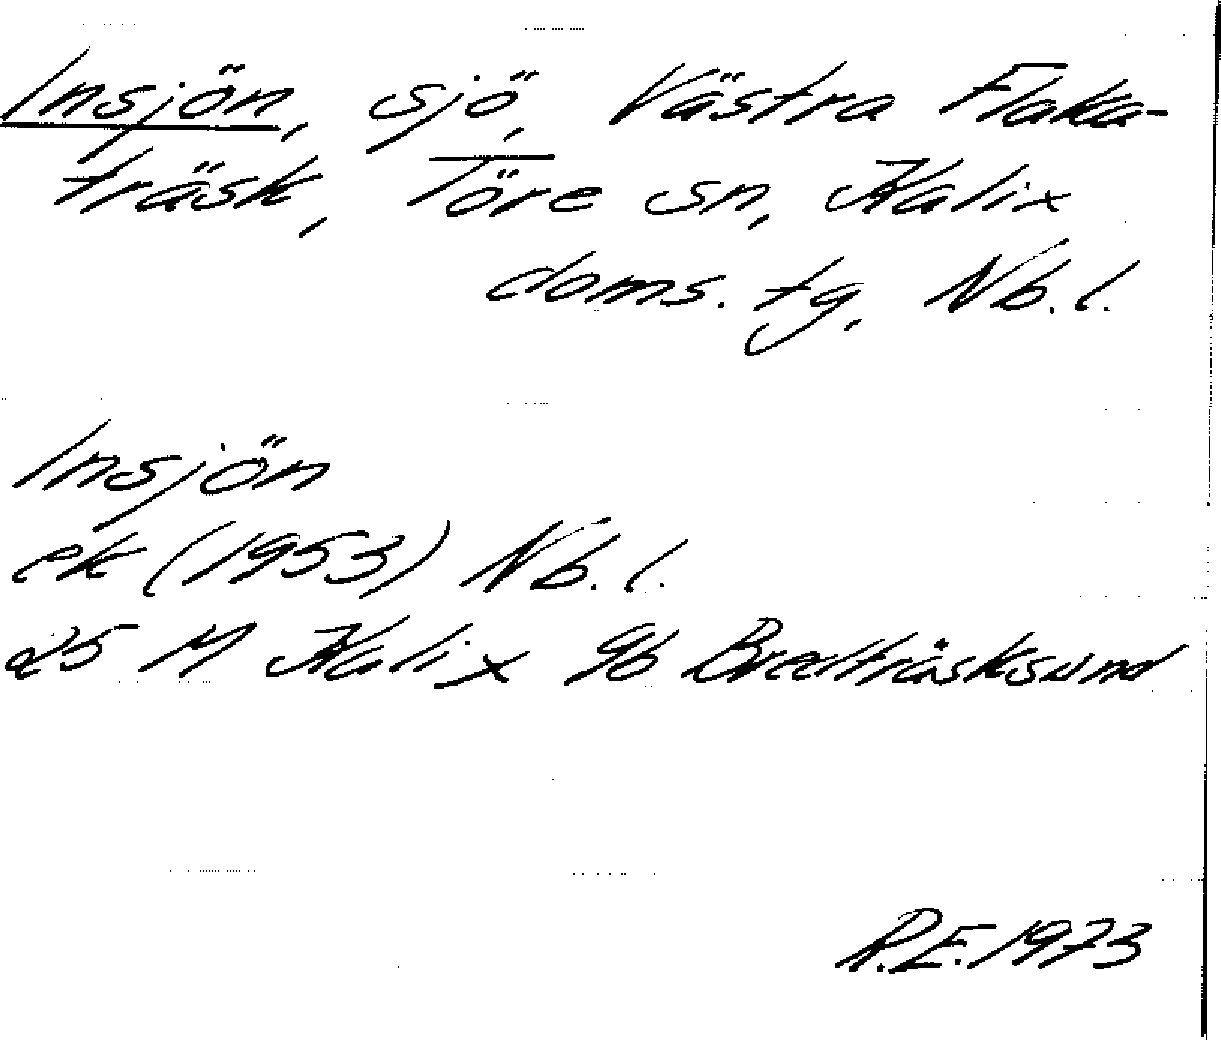 Insjön, sjö, Västra Flaka-
träsk, Töre sn, Kalix
doms. tg, Nb. l.
Insjön
ek (1953) Nb. l.
25 M Kalix 9b Bredträsksund
R.E. 1973